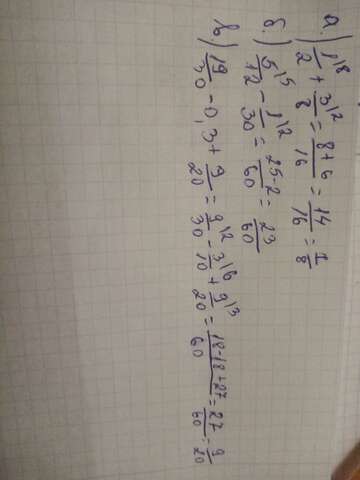 а.) 1/2 \8 + 3/8 \2 = 8+6/16 = 14/16 = 7/8
б.) 5/12 \5 - 1/30 \2 = 25-2/60 = 23/60
в.) 19/30 - 0,3 + 9/20 = 9/30 \2 - 3/10 \6 + 9/20 \3 = 18-18+27/60 = 27/60 = 9/20